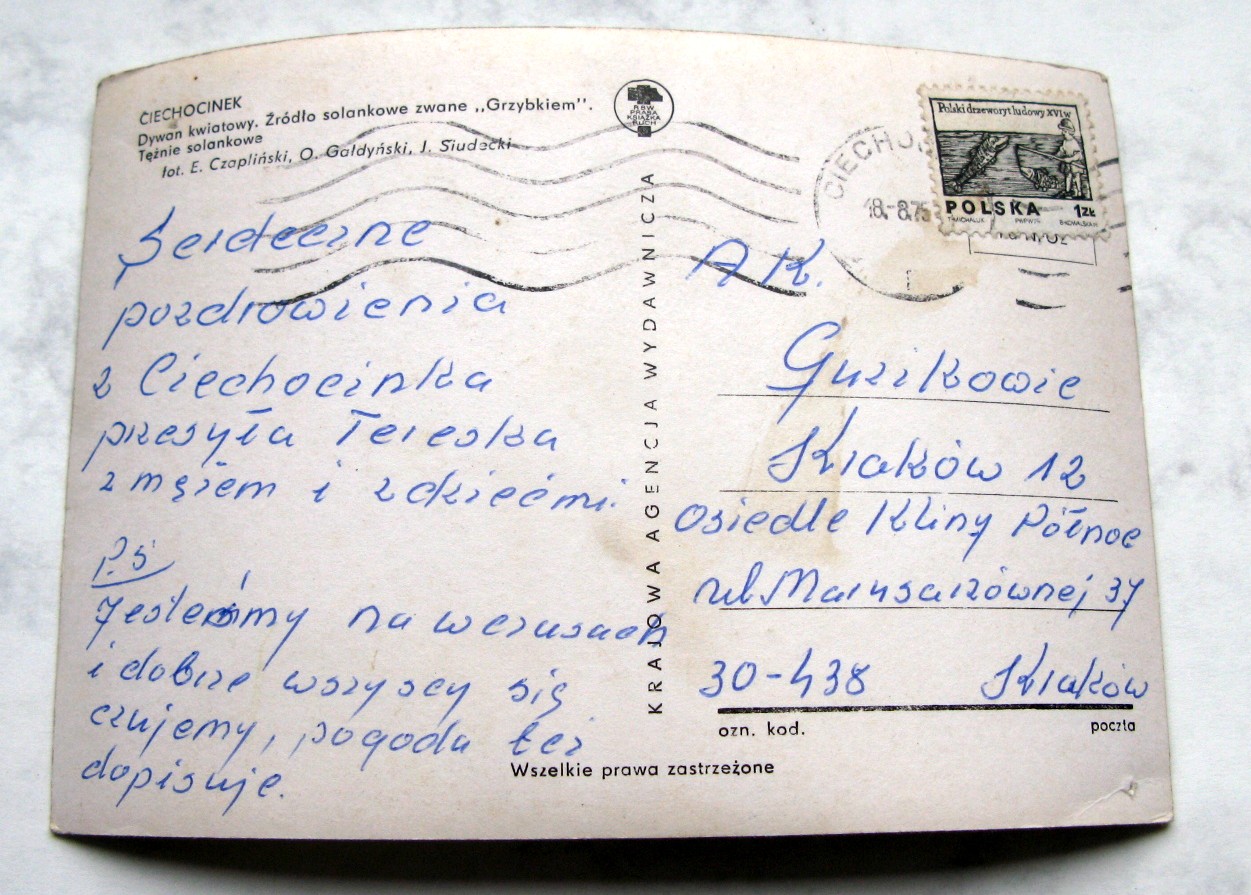 CIECHOCINEK
Dywan kwiatowy. Źródło solankowe zwane „Grzybkiem".
Tężnie solankowe
fot. E. Czapliński, O. Gałdyński, J. Siudecki
RSW
PRASA
KSIĄŻKA
RUCH
Serdeczne
pozdrowienia
z Ciechocinka
przesyła Tereska
z mężem i z dziećmi.
P.S
Jesteśmy na wczasach
i dobrze wszyscy się
czujemy, pogoda też
dopisuje.
KRAJOWA AGENCJA WYDAWNICZA
CIECHO
18.-8.75
Polski drzeworyt ludowy XVI w
POLSKA 1 ZŁ
A K.
Guzikowie
Kraków 12
osiedle Kliny Półnoe
ul. Marusarzównej 37
30-438 Kraków
ozn. kod. poczta
Wszelkie prawa zastrzeżone